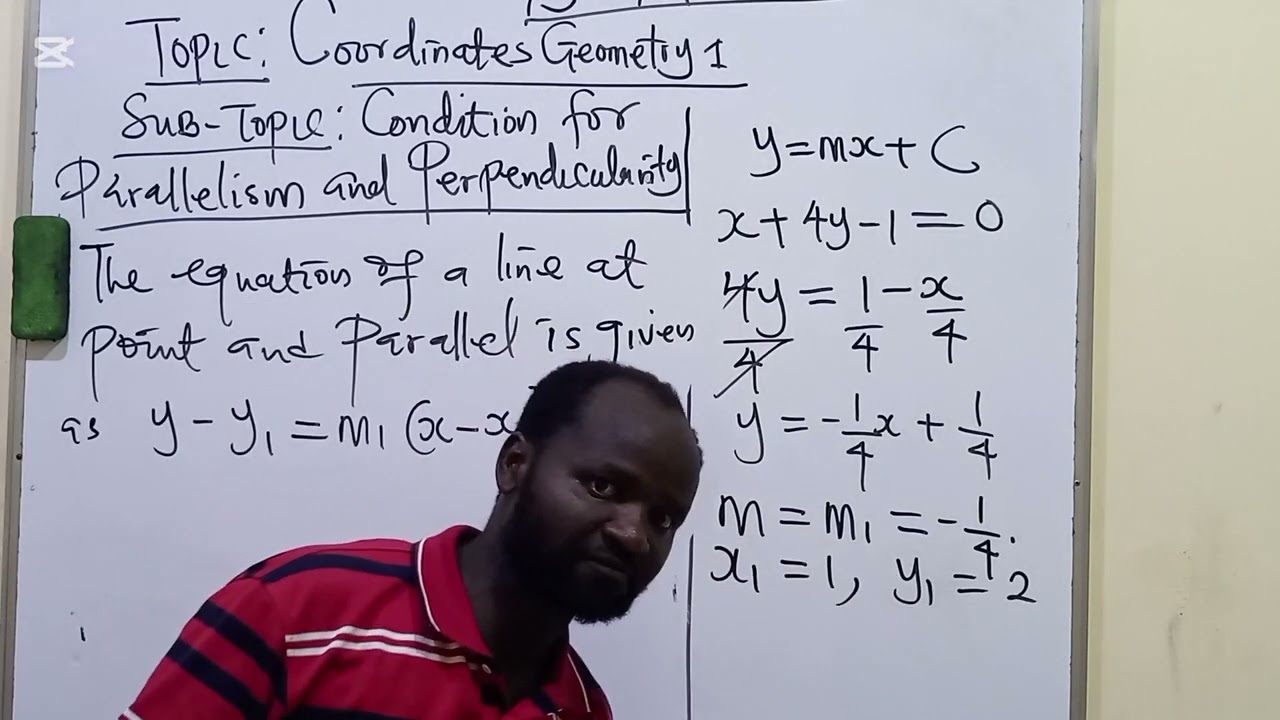 Topic: Coordinates Geometry 1
Sub-Topic: Condition for
Parallelism and Perpendicularity
The equation of a line at
point and parallel is given
as y - y₁ = m₁ (x - x
y = mx + C
x + 4y - 1 = 0
4y/4 = 1/4 - x/4
y = -1/4 x + 1/4
m = m₁ = -1/4.
x₁ = 1, y₁ = 2